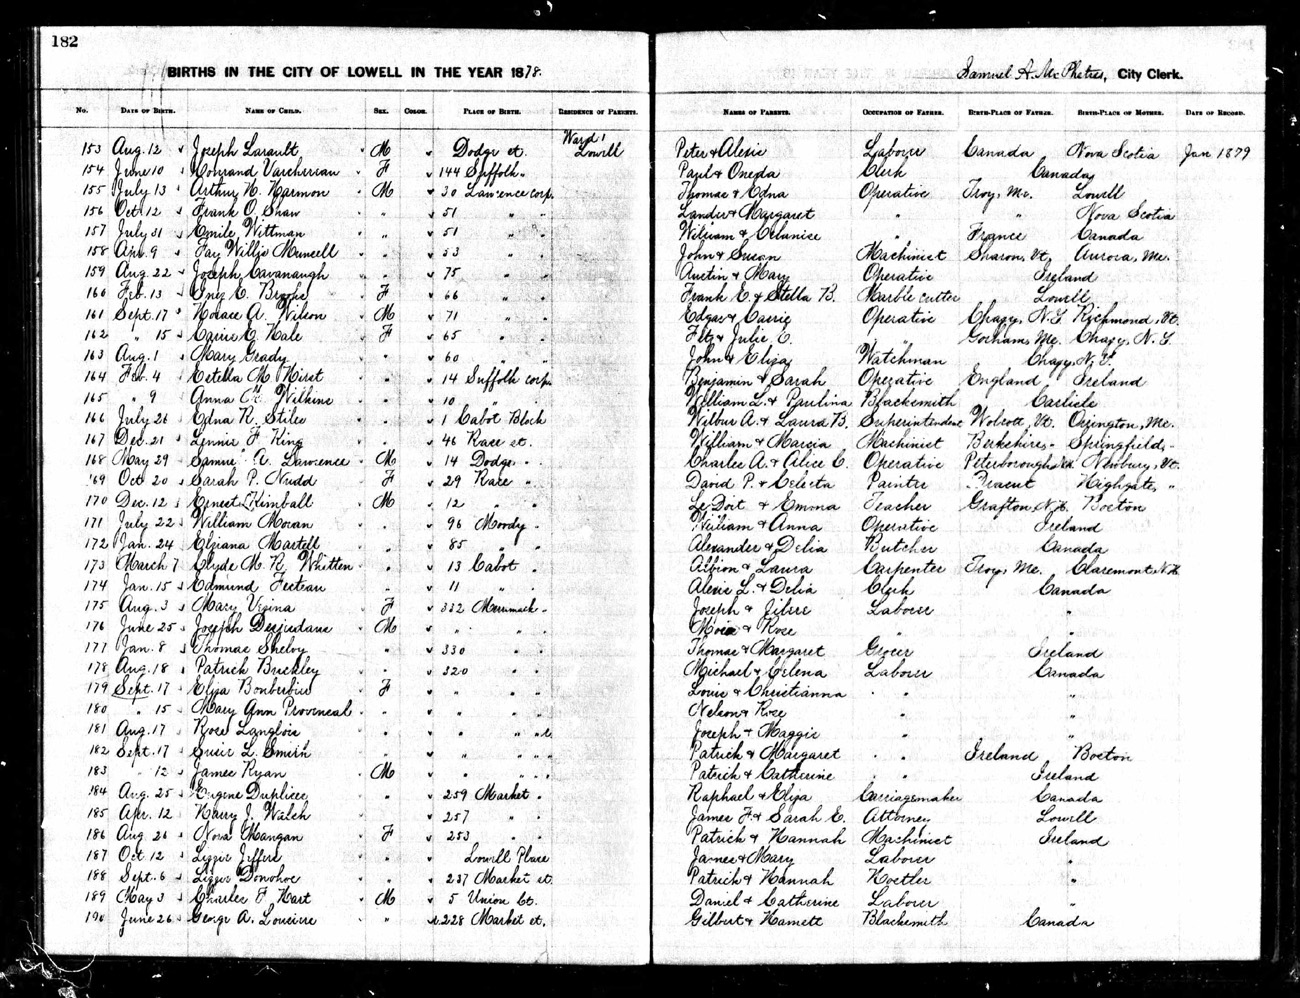 182
BIRTHS IN THE CITY OF LOWELL IN THE YEAR 1878. Samuel A. McPhetres, City Clerk.
No. DATE OF BIRTH. NAME OF CHILD. SEX. COLOR. PLACE OF BIRTH. RESIDENCE OF PARENTS. NAMES OF PARENTS. OCCUPATION OF FATHER. BIRTH-PLACE OF FATHER. BIRTH-PLACE OF MOTHER. DATE OF RECORD.
Ward 1
153 Aug. 12 Joseph Larault M Dodge st. Lowell Peter & Alexis Laborer Canada Nova Scotia Jan 1879
154 June 10 Varcherian F 144 Suffolk " Paul & Oneda Clerk Canada
155 July 13 Arthur H. Harmon M 30 Lawrence corp. Thomas & Edna Operative Troy, Me. Lowell
156 Oct. 12 Frank O. Shaw " 51 " " Lander & Margaret " " Nova Scotia
157 July 31 Emile Wittman " 51 " " William & Celanise " France Canada
158 Apr. 9 Fay Willis Muncell " 53 " " John & Susan Machinist Sharon, Vt. Aurora, Me.
159 Aug. 22 Joseph Cavanaugh " 75 " " Austin & Mary Operative Ireland
160 Feb. 13 Inez E. Brooks F 66 " " Frank E. & Stella B. Marble cutter Lowell
161 Sept. 17 Horace A. Wilson M 71 " " Edgar & Carrie Operative Chazy, N.Y. Richmond, Vt.
162 " 15 Carrie E. Hale F 65 " " & Julia E. " Gorham, Me. Chazy, N.Y.
163 Aug. 1 Mary Grady " 60 " " John & Eliza Watchman Chazy, N.Y.
164 Feb. 4 Estella M. Hirst " 14 Suffolk corp. Benjamin & Sarah Operative England Ireland
165 " 9 Anna Wilkins " 10 " " William L. & Paulina Blacksmith Carlisle
166 July 26 Edna R. Stiles " 1 Cabot Block Wilbur A. & Laura B. Superintendent Wolcott, Vt. Orrington, Me.
167 Dec. 21 Lennie F. King " 46 Race st. William & Marcia Machinist Berkshire, " Springfield, "
168 May 29 Samuel A. Lawrence M 14 Dodge " Charles A. & Alice C. Operative Peterborough N.H. Newbury, Vt.
169 Oct. 20 Sarah P. Nudd F 29 Race " David P. & Celesta Painter Dracut Highgate, "
170 Dec. 12 Ernest Kimball M 12 " " Le Doit & Emma Teacher Grafton, N.H. Boston
171 July 22 William Moran " 96 Moody " William & Anna Operative Ireland
172 Jan. 24 Elziana Martell " 85 " " Alexander & Delia Butcher Canada
173 March 7 Clyde M. H. Whitten " 13 Cabot " Albion & Laura Carpenter Troy, Me. Claremont N.H.
174 Jan. 15 Edmund Fecteau " 11 " " Alexis L. & Delia Clerk Canada
175 Aug. 3 Mary Vezina F 332 Merrimack " Joseph & Laborer "
176 June 25 Joseph Desjardans M " " " & Rose " "
177 Jan. 8 Thomas Shelvy " 330 " " Thomas & Margaret Grocer Ireland
178 Aug. 18 Patrick Brickley " 320 " " Michael & Celena Laborer Canada
179 Sept. 17 Eliza Bonberbise F " " " Louis & Christianna " "
180 " 15 Mary Ann Provincal " " " " Nelson & Rose " "
181 Aug. 17 Rose Langlois " " " " Joseph & Maggie " "
182 Sept. 17 Susie L. Smith " " " " Patrick & Margaret " Ireland Boston
183 " 12 James Ryan M " " " Patrick & Catherine " Ireland
184 Aug. 25 Eugene Duplisee " 259 Market " Raphael & Eliza Carriagemaker Canada
185 Apr. 12 Harry J. Walch " 257 " " James F. & Sarah E. Attorney Lowell
186 Aug. 26 Nora Mangan F 253 " " Patrick & Hannah Machinist Ireland
187 Oct. 12 Lizzie Jeffers " Lowell Place James & Mary Laborer "
188 Sept. 6 Lizzie Donohoe " 237 Market st. Patrick & Hannah Hostler "
189 May 3 Charles F. Hart M 5 Union Ct. Daniel & Catherine Laborer "
190 June 26 George A. " 228 Market st. Gilbert & Blacksmith Canada